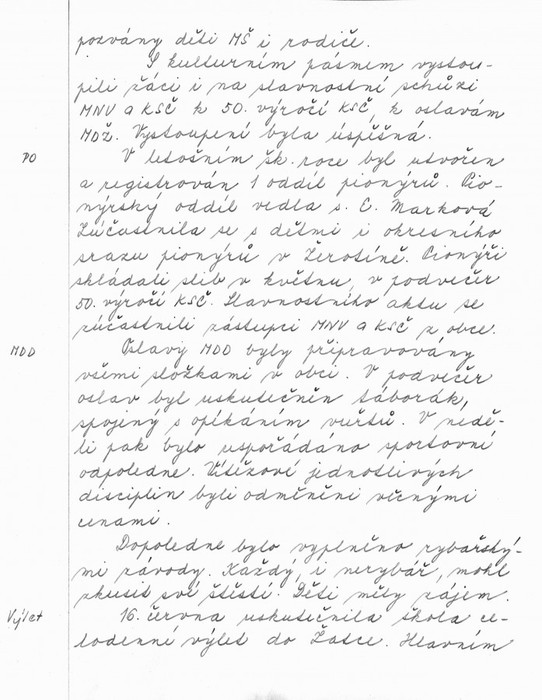 pozvány děti MŠ i rodiče.
S kulturním pásmem vystou-
pili žáci i na slavnostní schůzi
MNV a KSČ k 50. výročí KSČ, k oslavám
MDŽ. Vystoupení byla úspěšná.
PO V letošním šk. roce byl utvořen
a registrován 1 oddíl pionýrů. Pio-
nýrský oddíl vedla s. C. Marková
Zúčastnila se s dětmi i okresního
srazu pionýrů v Žerotíně. Pionýři
skládali slib v květnu, v podvečer
50. výročí KSČ. Slavnostního aktu se
zúčastnili zástupci MNV a KSČ z obce.
MDD Oslavy MDD byly připravovány
všemi složkami v obci. V podvečer
oslav byl uskutečněn táborák,
spojený s opékáním vuřtů. V nedě-
li pak bylo uspořádáno sportovní
odpoledne. Vítězové jednotlivých
disciplin byli odměněni věcnými
cenami.
Dopoledne bylo vyplněno rybářský-
mi závody. Každý, i nerybář, mohl
zkusit své štěstí. Děti měly zájem.
Výlet 16. června uskutečnila škola ce-
lodenní výlet do Žatce. Hlavním